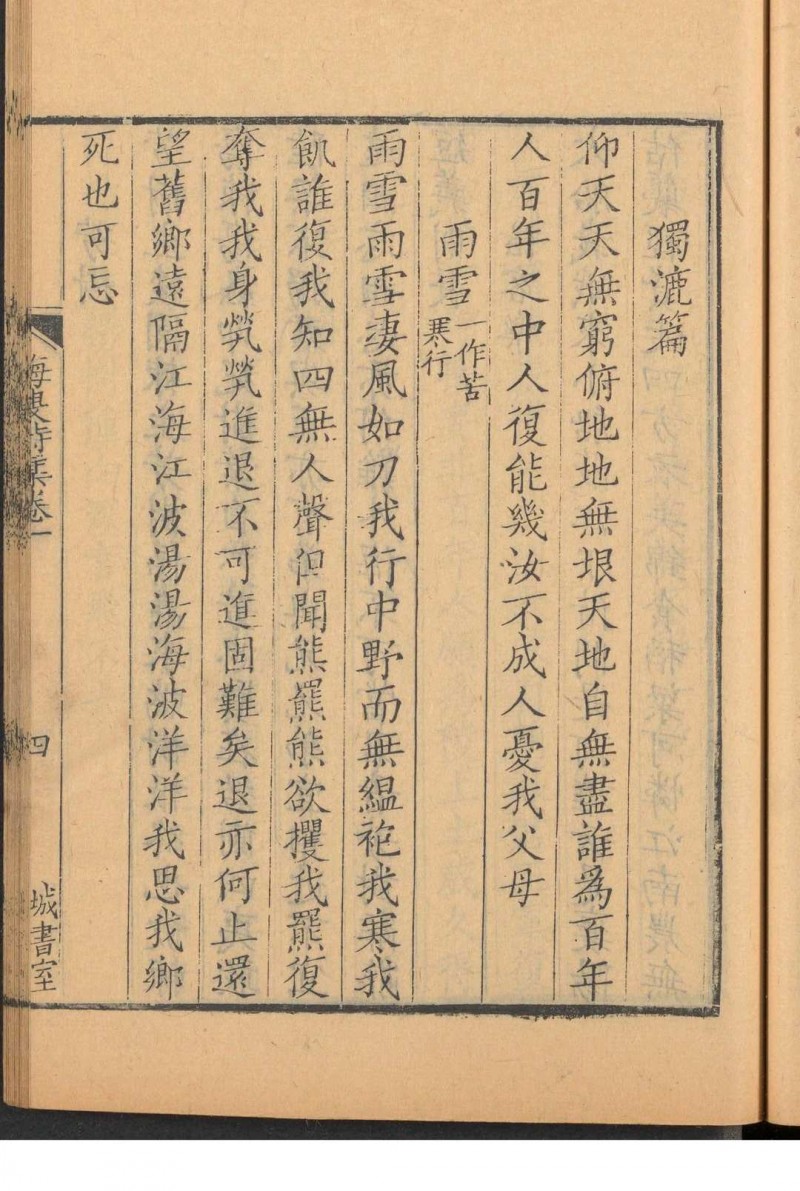 獨漉篇
仰天天無窮俯地地無垠天地自無盡誰爲百年
人百年之中人復能幾汝不成人憂我父母
雨雪一作苦寒行
雨雪雨雪淒風如刀我行中野而無緼袍我寒我
飢誰復我知四無人聲但聞熊羆熊欲攫我羆復
奪我我身煢煢進退不可進固難矣退亦何止還
望舊鄉遠隔江海江波湯湯海波洋洋我思我鄉
死也可忘
海叟詩集卷一
四
城書室